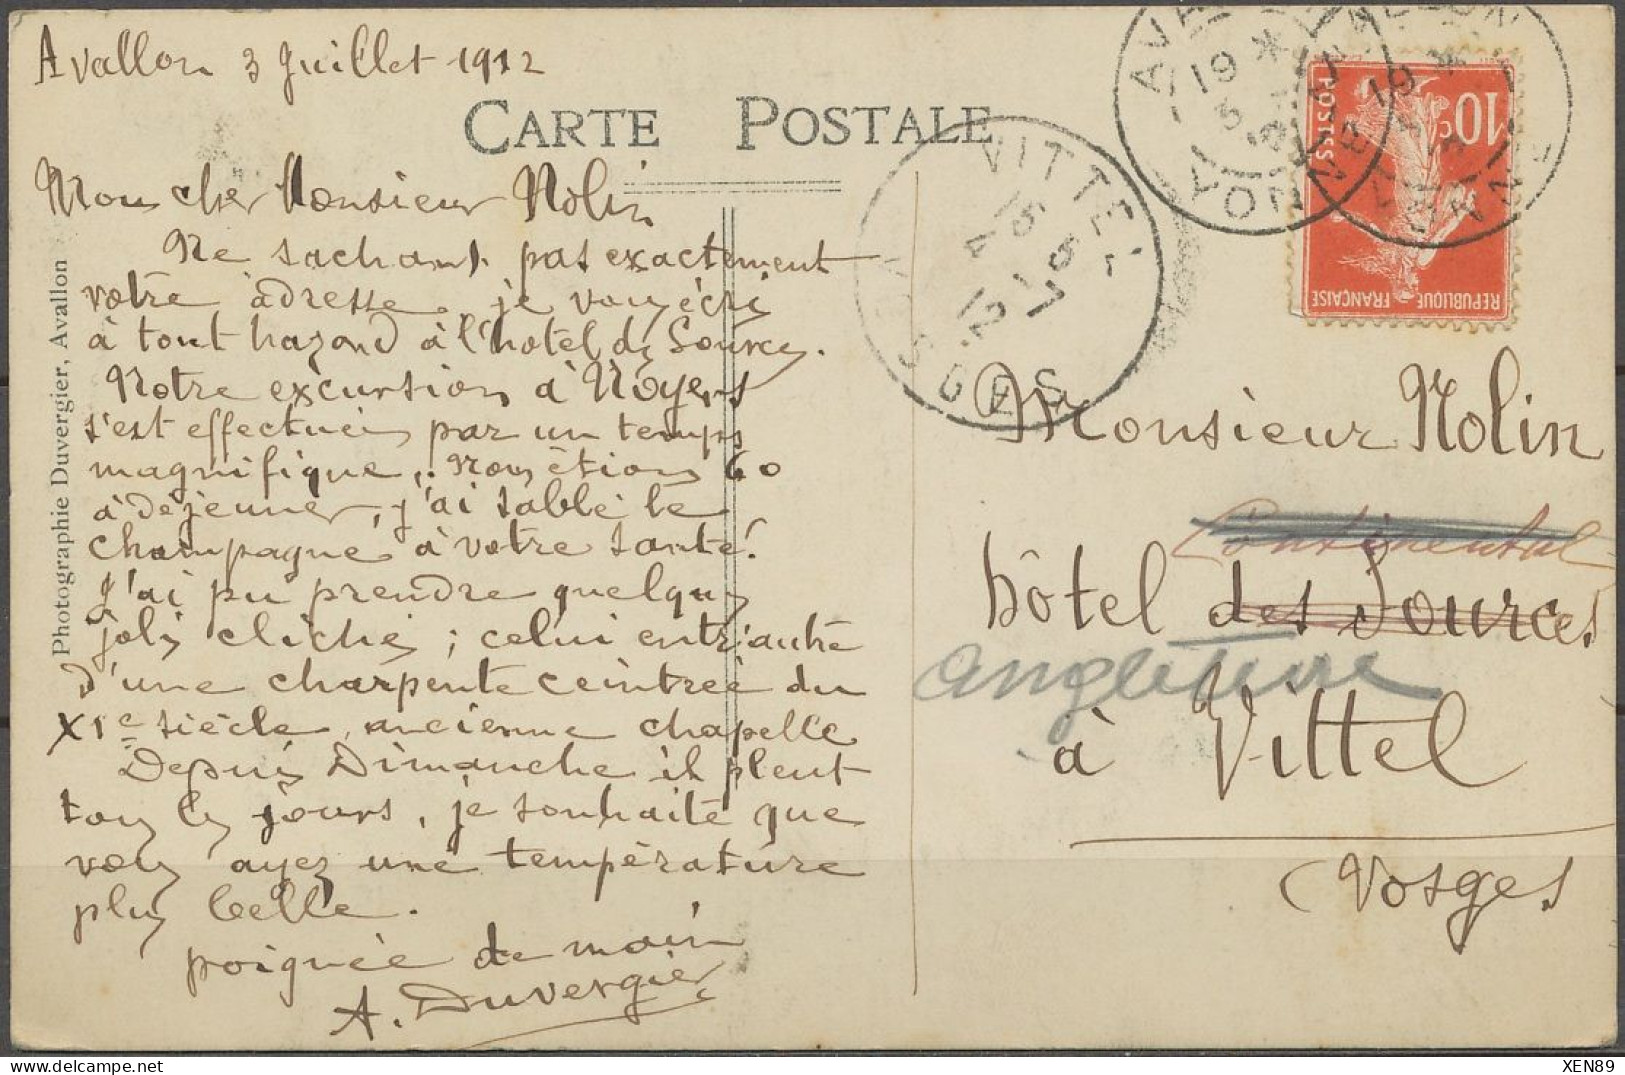 Avallon 3 Juillet 1912
CARTE POSTALE
Mon cher Monsieur Nolin
Ne sachant pas exactement
votre adresse, je vous écris
à tout hazard à l'hotel des Sources.
Notre excursion à Noyers
s'est effectuée par un temps
magnifique, nous étions 60
à déjeuner, j'ai sablé le
champagne à votre santé!
J'ai pu prendre quelques
jolis clichés; celui entr'autre
d'une charpente ceintrée du
XIe siècle, ancienne chapelle
Depuis Dimanche il pleut
tous les jours, je souhaite que
vous ayez une température
plus belle.
poignée de main
A. Duvergier
Photographie Duvergier, Avallon
VITTEL
15 45
4 7
12
VOSGES
AVALLON
19 *
3
YONNE
10c
POSTES
REPUBLIQUE FRANÇAISE
Monsieur Nolin
Continental
hôtel des Sources
angleterre
à Vittel
(Vosges
XEN89